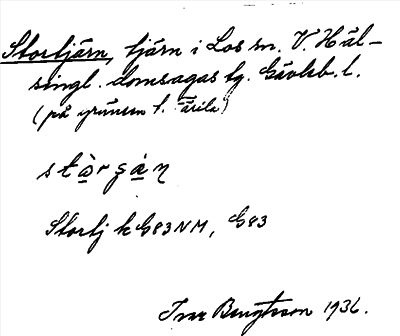 Stortjärn, tjärn i Los sn. V. Häl-
singl. domsagas tg. Gävleb. l.
(på gränsen t. Ärila)
stɔ̀rʂa̠n
Stortj k G83NM, G83
Ivar Bengtsson 1936.